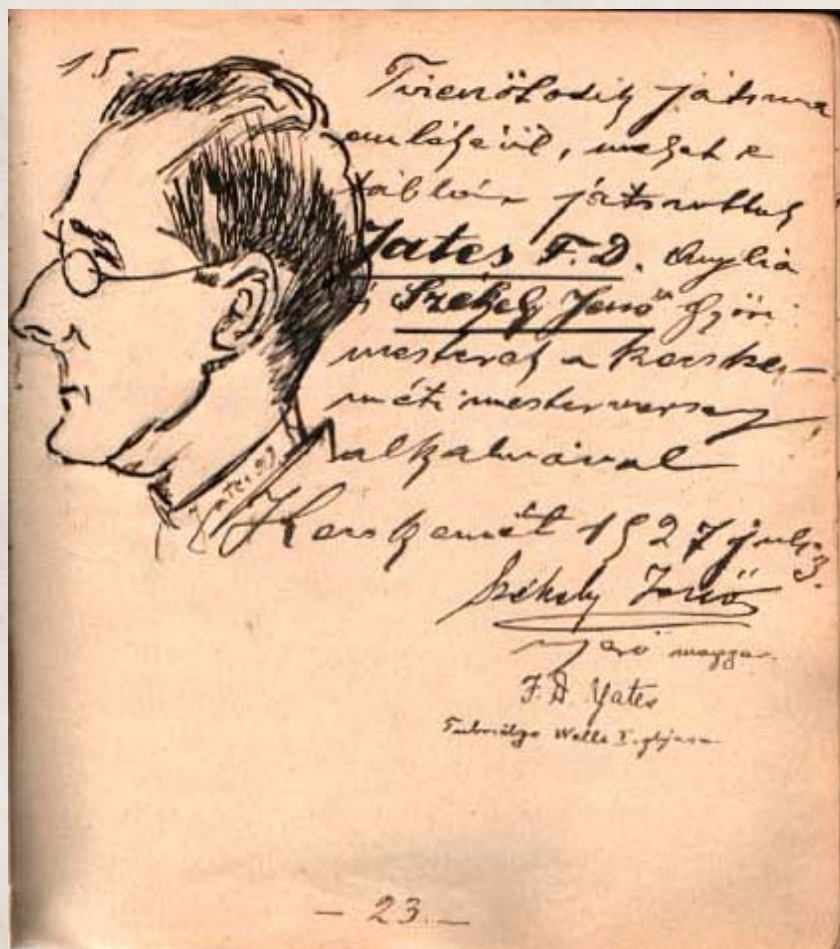 15.
Tizenötödik játszma
emlékéül, melyet e
táblán játszottak
Yates F. D. Anglia
és Székely Jenő győri
mesterek a kecske-
méti mesterverseny
alkalmával
Kecskemét 1927 juli 3.
Székely Jenő
magyar
F. D. Yates
Wells I.
- 23. -